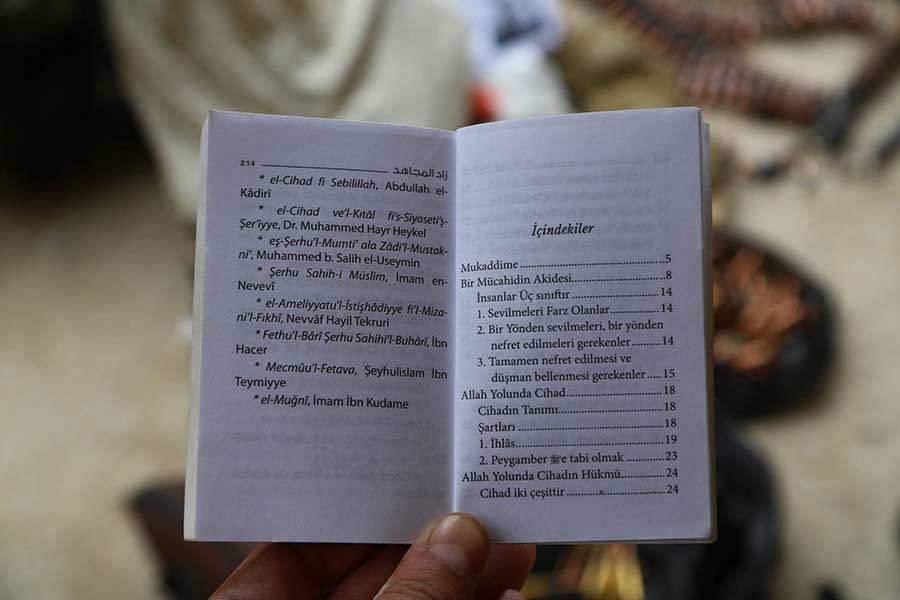 214 زاد المجاهد
* el-Cihad fi Sebilillah, Abdullah el-
Kâdirî
* el-Cihad ve'l-Kıtâl fi's-Siyaseti'ş-
Şer'iyye, Dr. Muhammed Hayr Heykel
* eş-Şerhu'l-Mumti' ala Zâdi'l-Mustak-
ni', Muhammed b. Salih el-Useymin
* Şerhu Sahih-i Müslim, İmam en-
Nevevî
* el-Ameliyyatu'l-İstişhâdiyye fi'l-Miza-
ni'l-Fıkhî, Nevvâf Hayil Tekruri
* Fethu'l-Bârî Şerhu Sahihi'l-Buhârî, İbn
Hacer
* Mecmûu'l-Fetava, Şeyhulislam İbn
Teymiyye
* el-Muğnî, İmam İbn Kudame
İçindekiler
Mukaddime.....5
Bir Mücahidin Akidesi.....8
İnsanlar Üç sınıftır.....14
1. Sevilmeleri Farz Olanlar.....14
2. Bir Yönden sevilmeleri, bir yönden
nefret edilmeleri gerekenler.....14
3. Tamamen nefret edilmesi ve
düşman bellenmesi gerekenler.....15
Allah Yolunda Cihad.....18
Cihadın Tanımı.....18
Şartları.....18
1. İhlâs.....19
2. Peygamber ﷺ'e tabi olmak.....23
Allah Yolunda Cihadın Hükmü.....24
Cihad iki çeşittir.....24